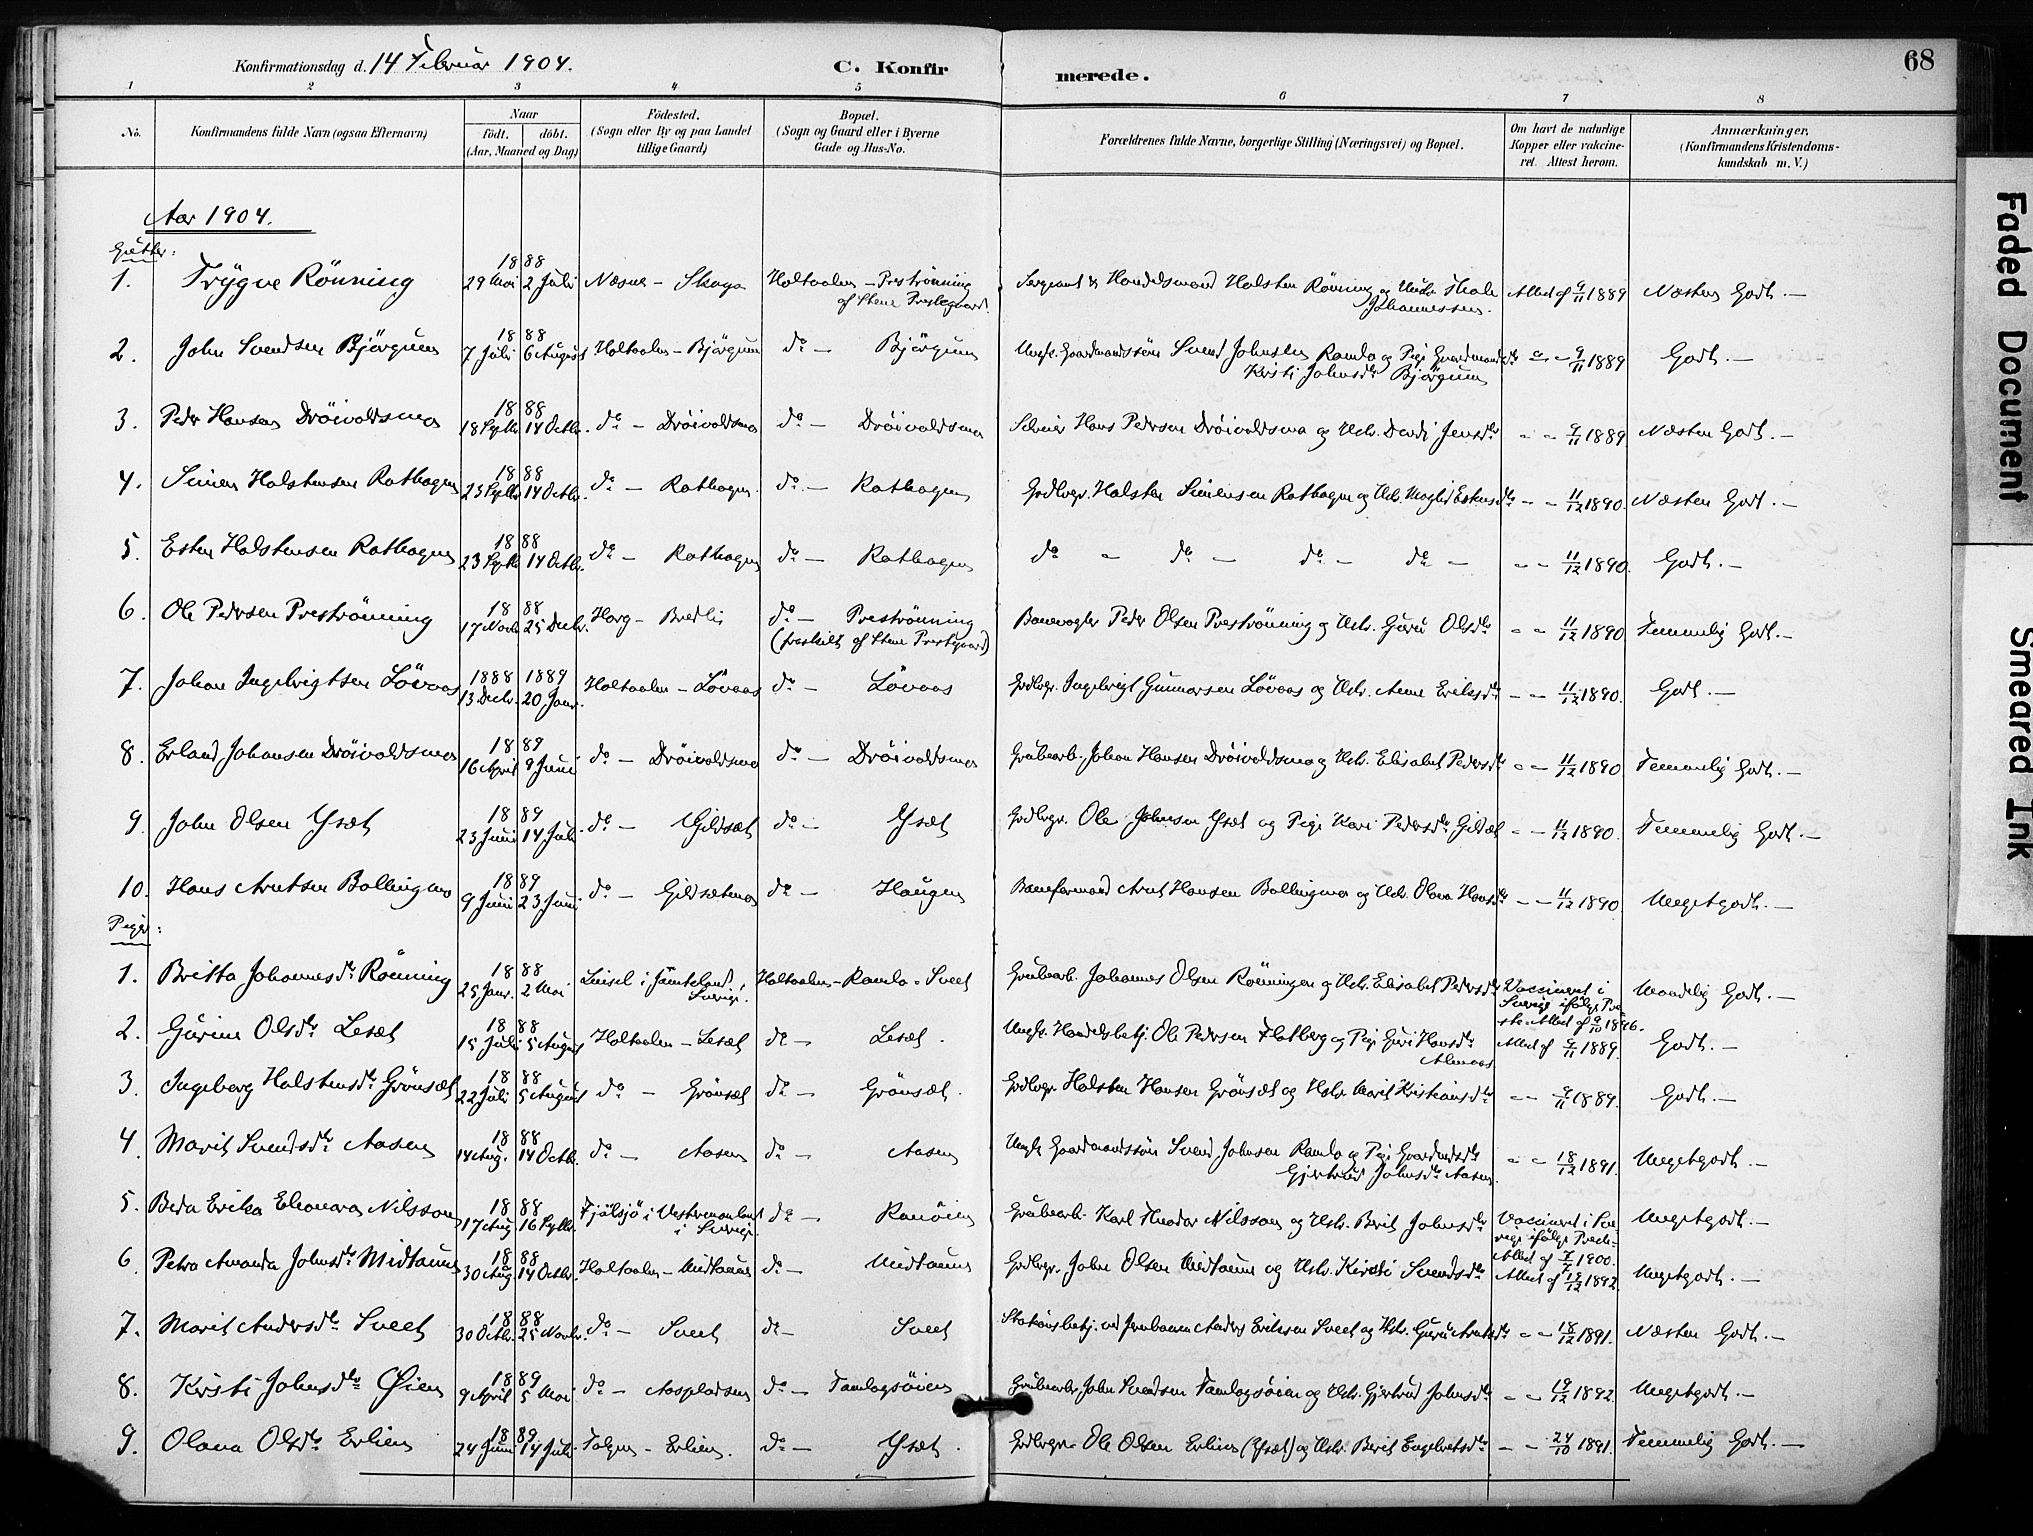 68
Konfirmationsdag d. 14 Februar 1904.
C. Konfirmerede.
1 2 3 4 5 6 7 8
No. Konfirmandens fulde Navn (ogsaa Efternavn) Naar født. døbt. (Aar, Maaned og Dag) Födested. (Sogn eller By og paa Landet tillige Gaard) Bopæl. (Sogn og Gaard eller i Byerne Gade og Hus-No. Forældrenes fulde Navne, borgerlige Stilling (Næringsvei) og Bopæl. Om havt de naturlige Kopper eller vakcineret. Attest herom. Anmærkninger. (Konfirmandens Kristendomskundskab m. V.)
Aar 1904.
Gutter:
1. Trygve Rönning 1888 29 Mai 2 Juli Næsne - Skaga Holtaalen - Preströnning af Stene Prestegaard. Sergeant & Handelsmand Halsten Rönning og Johannessen. Attest af 9/11 1889 Næsten Godt. —
2. John Svendsen Björgum 1888 7 Juli 6 August Holtaalen - Björgum do — Björgum Ungk. Gaardmandssön Svend Johnsen Ramlo og Pige Gaardmandsdtr Kristi Johnsdtr Björgum " - 9/11 1889 Godt. —
3. Peder Hansen Dröivoldsmo 1888 18 Septbr 14 Octbr. do — Dröivoldsmo do — Dröivoldsmo Hans Pedersen Dröivoldsmo og Hstr. Jensdtr - - 9/11 1889 Næsten Godt. —
4. Simen Halstensen Rathagen 1888 23 Septbr 14 Octbr. do — Rathagen do — Rathagen Grdbrgr. Halsten Simensen Rathagen og Hstr. Magli Estensdtr - - 11/12 1890. Næsten Godt. —
5. Esten Halstensen Rathagen 1888 23 Septbr 14 Octbr. do — Rathagen do — Rathagen do - do - do - do - - - 11/12 1890. Godt. —
6. Ole Pedersen Preströnning 1888 17 Novbr 25 Decbr. Harg - Bredli do — Preströnning (fraskilt af Stene Prestegaard) Banevogter Peder Olsen Preströnning og Hstr. Guru Olsdtr - - 11/12 1890 Temmelig Godt. —
7. Johan Ingebrigtsen Lövaas 1888 1889 13 Decbr. 20 Janr. Holtaalen - Lövaas do — Lövaas Grdbrgr. Ingebrigt Gunnarsen Lövaas og Hstr. Anne Eriksdtr - - 11/12 1890. Godt. —
8. Erland Johansen Dröivoldsmo 1889 16 April 9 Juni do — Dröivoldsmo do — Dröivoldsmo Grubearb. Johan Hansen Dröivoldsmo og Hstr. Elisabet Pedersdtr - - 11/12 1890 Temmelig Godt. —
9. John Olsen Ysæt 1889 23 Juni 14 Juli do — Gildsæt do — Ysæt Grdbrgr. Ole Johnsen Ysæt og Pige Kari Pedersdtr Gildsæt - - 11/12 1890. Temmelig Godt. —
10. Hans Arntsen Bollingmo 1889 9 Juni 23 Juni do — Gildsætmo do — Haugen Baneformand Arnt Hansen Bollingmo og Hstr. Olava Hansdtr - - 11/12 1890. Megetgodt. —
Piger:
1. Britta Johannesdtr Rönning 1888 25 Janr. 2 Mai Linsel i Jämteland, Sverige. Holtaalen - Ramlo - Sveet Grubearb. Johannes Olsen Rönningen og Hstr. Elisabet Pedersdtr Vaccineret i Sverige ifölge Preste-Attest af 9/10 1896. Maadelig Godt. —
2. Gurine Olsdtr Lesæt 1888 15 Juli 5 August Holtaalen - Lesæt do — Lesæt. Ungk. Handelsbetj. Ole Pedersen Flatberg og Pige Guri Hansdtr Almaas Attest af 9/11 1889. Godt. —
3. Ingeborg Halstensdtr Grönsæt 1888 22 Juli 5 August do — Grönsæt do — Grönsæt. Grdbrgr Halsten Hansen Grönsæt og Hstr. Marit Kristiansdtr - - 9/11 1889. Godt. —
4. Marit Svendsdtr Aasen 1888 14 Aug. 14 Octbr. do — Aasen do — Aasen Ungk. Gaardmandssön Svend Johnsen Ramlo og Pige Gaardmdsdtr Gjertrud Johnsdtr Aasen. - - 18/12 1891. Megetgodt. —
5. Beda Erika Eleonora Nilsson 1888 17 Aug 16 Septbr. Fjälsjö i i Sverige. do — Ranöien Grubearb. Karl Teodor Nilsson og Hstr. Berit Johnsdtr Vaccineret i Sverige ifölge Preste-Attest af 7/7 1900. Megetgodt. —
6. Petra Amanda Johnsdtr Midtaune 1888 30 Aug 14 Octbr. Holtaalen - Midtaune do — Midtaune Grdbrgr. John Olsen Midtaune og Hstr. Kirsti Svendsdtr Attest af 19/12 1892. Megetgodt. —
7. Marit Andersdtr Sveet 1888 30 Octbr. 25 Novbr. do — Sveet do — Sveet Stationsbetj. ved Jernbanen Anders Eriksen Sveet og Hstr. Guru Arntsdtr - - 18/12 1891. Næsten Godt. —
8. Kristi Johnsdtr Øien 1889 9 April 5 Mai do — Aaspladsen do — Tamlagsöien Grubearb. John Svendsen Tamlagsöien og Hstr. Gjertrud Johnsdtr - - 19/12 1892. Megetgodt. —
9. Olava Olsdtr Erlien 1889 24 Juni 14 Juli Tolgen - Erlien. do — Ysæt. Grdbrgr. Ole Olsen Erlien (Ysæt) og Hstr. Berit Engebretsdtr - - 24/10 1891. Temmelig Godt. —
Faded Document
Smeared Ink